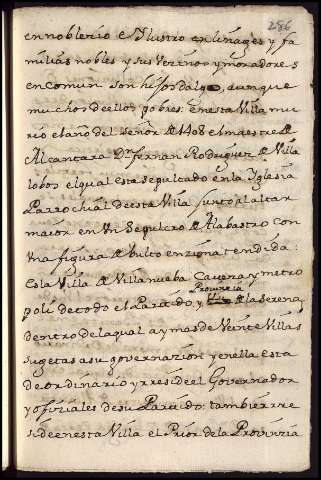 286
ennoblezio e Ylustro en linages y fa
milias nobles y sus Vezinos y moradores
en comun son hijosdalgo, aunque
muchos de ellos pobres. en esta Villa mu
rio el año del señor de 1408 el maestre de
Alcantara Dn fernan Rodriguez de Villa
lobos el qual esta sepultado en la Yglesia
Parrochial de esta Villa junto al altar
maior en Un Sepulcro de Alabastro con
Una figura de bulto enzima tendida:
Es la Villa de Villanueba Caveza y metro
poli de todo el Partido, y
Provinzia
de la Serena,
dentro de la qual ay mas de Veinte Villas
sugetas a su governazion y en ella esta
de ordinario y rreside el Governador
y ofiziales de su Partido: tambien rre
side en esta Villa el Prior de la Provinzia